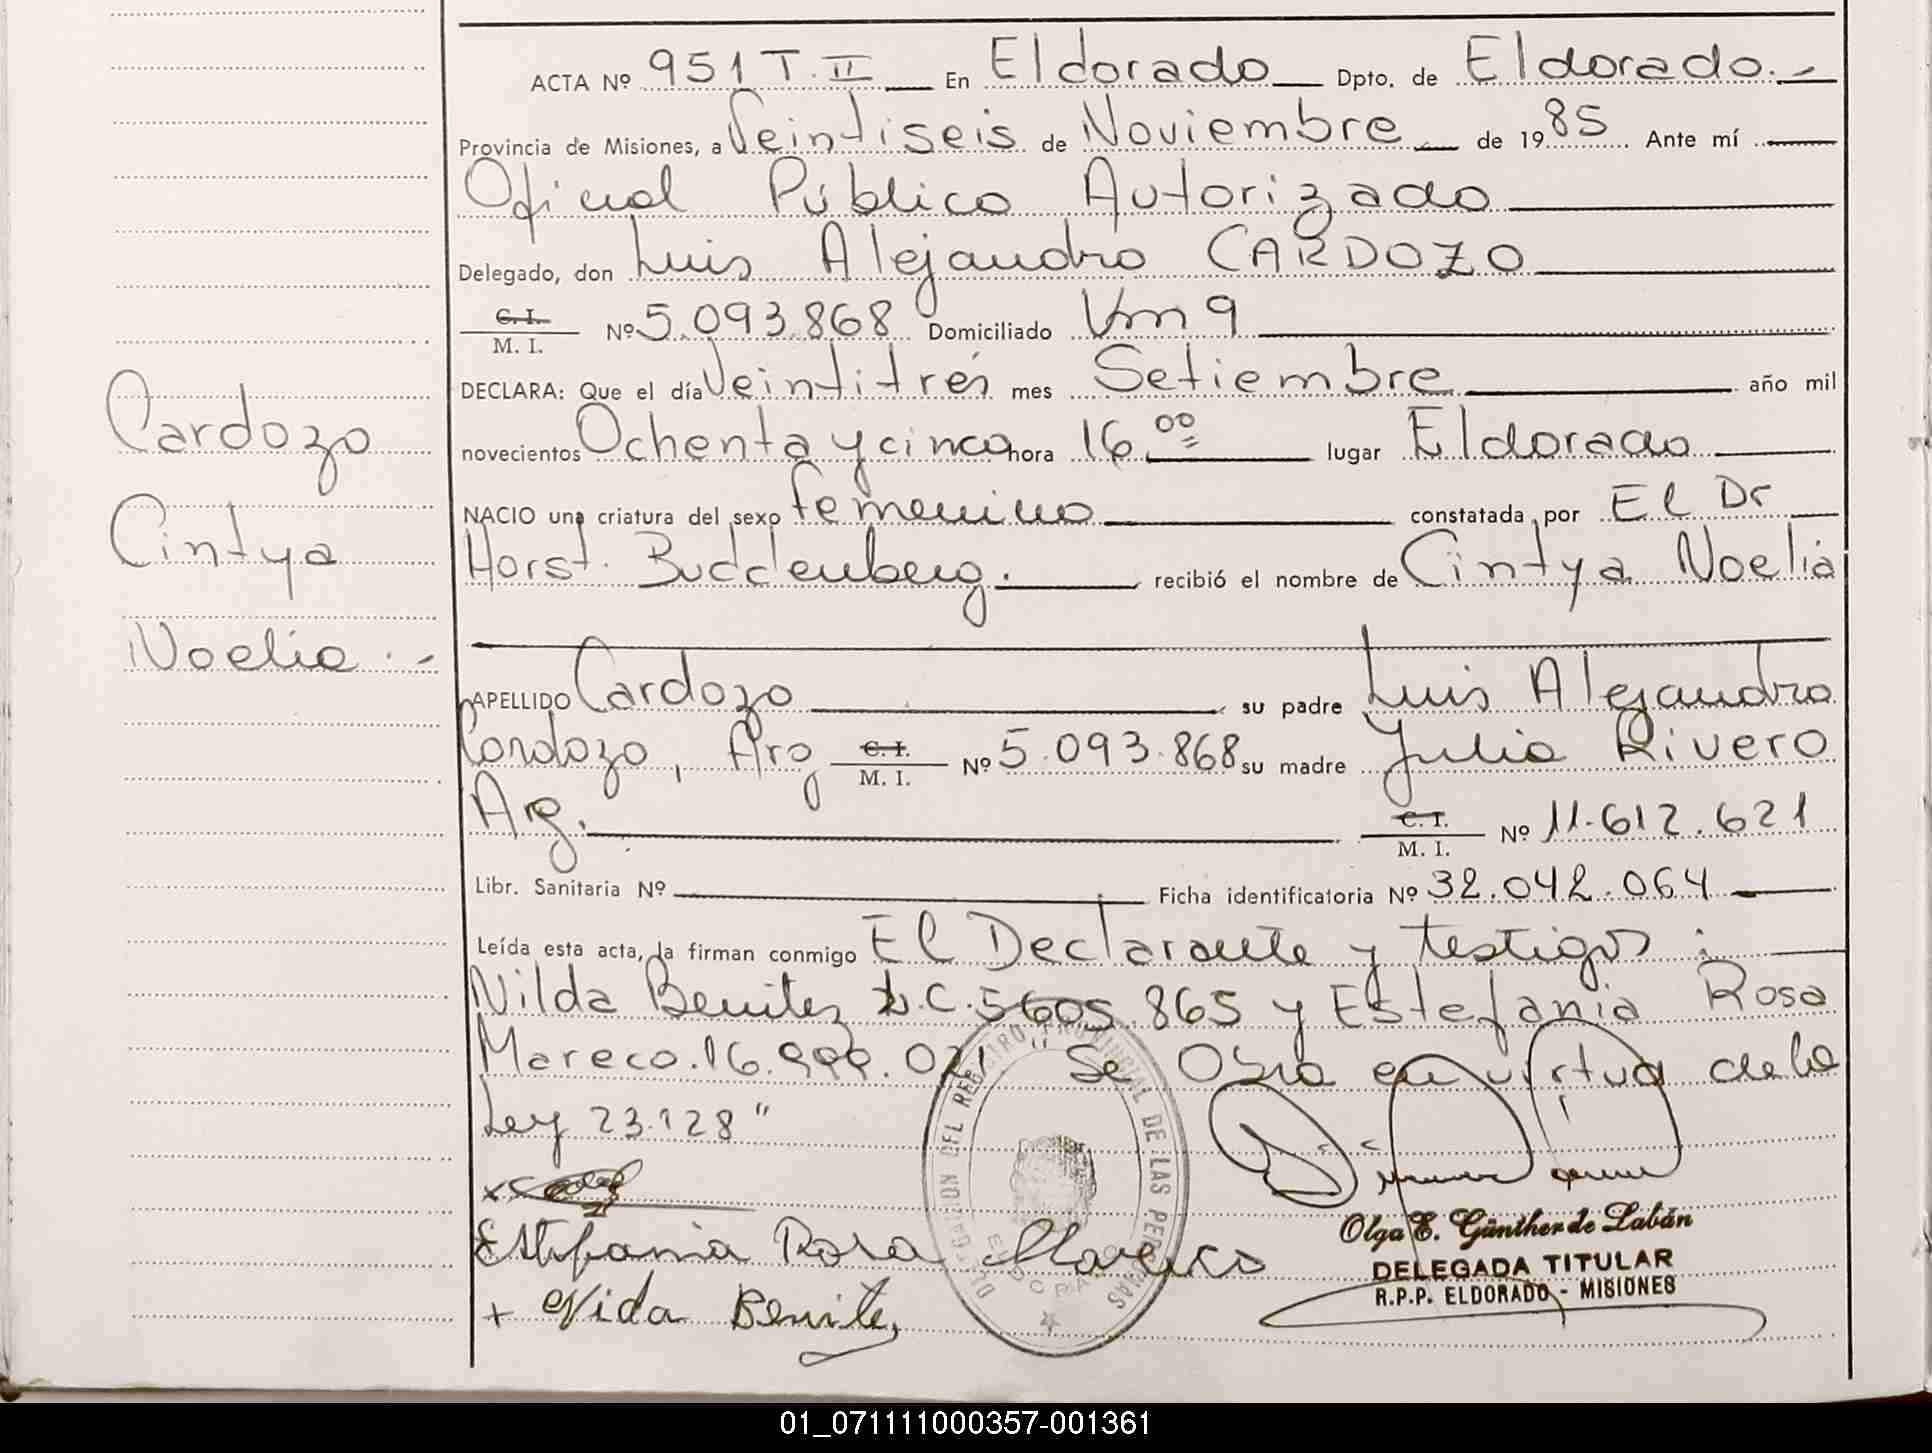 ACTA Nº 951 T. II En Eldorado Dpto. de Eldorado.-
Provincia de Misiones, a Veintiseis de Noviembre de 1985 Ante mí
Oficial Público Autorizado
Delegado, don Luis Alejandro CARDOZO
C. I.
M. I. Nº 5.093.868 Domiciliado Km 9
DECLARA: Que el día Veintitrés mes Setiembre año mil
novecientos Ochenta y cinco hora 16.00 lugar Eldorado
NACIO una criatura del sexo femenino constatada por El Dr
Horst. Buddenberg. recibió el nombre de Cintya Noelia
APELLIDO Cardozo su padre Luis Alejandro
Cardozo, Arg C. I. M. I. Nº 5.093.868 su madre Julia Rivero
Arg. C. I. M. I. Nº 11.612.621
Libr. Sanitaria Nº Ficha identificatoria Nº 32.042.064
Leída esta acta, la firman conmigo El Declarante y testigos:
Nilda Benitez L.C. 5605.865 y Estefania Rosa
Mareco. 16. "Se Obra en virtud de la
Ley 23.128"
Estefania Rosa Mareco
+ Nida Benitez
Cardozo
Cintya
Noelia.-
DELEGACION DEL REGISTRO PROVINCIAL DE LAS PERSONAS
ELDORADO
Olga E. Günther de Labán
DELEGADA TITULAR
R.P.P. ELDORADO - MISIONES
01_071111000357-001361